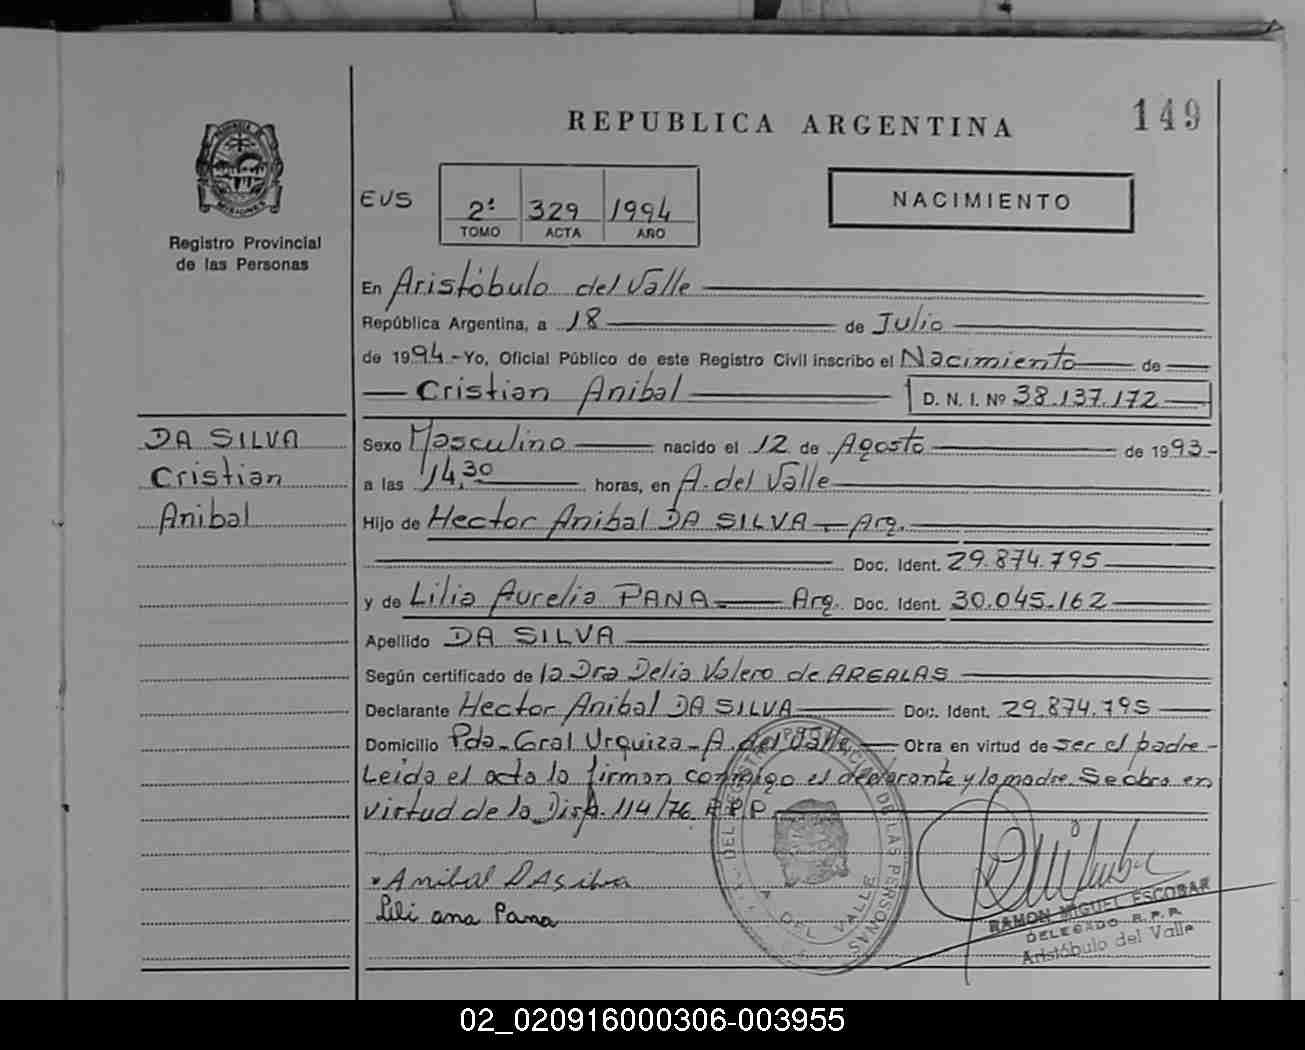 149
REPUBLICA ARGENTINA
PROVINCIA DE MISIONES
Registro Provincial
de las Personas
EVS
2ª 329 1994
TOMO ACTA AÑO
NACIMIENTO
En Aristóbulo del Valle
República Argentina, a 18 de Julio
de 1994.-Yo, Oficial Público de este Registro Civil inscribo el Nacimiento de
Cristian Anibal D. N. I. Nº 38.137.172
DA SILVA
Cristian
Anibal
Sexo Masculino nacido el 12 de Agosto de 1993.-
a las 14,30 horas, en A. del Valle
Hijo de Hector Anibal DA SILVA - Arg.
Doc. Ident. 29.874.795
y de Lilia Aurelia PANA Arg. Doc. Ident. 30.045.162
Apellido DA SILVA
Según certificado de la Dra Delia Valero de
Declarante Hector Anibal DA SILVA Doc. Ident. 29.874.795
Domicilio Pdo- Gral Urquiza- A. del Valle Otra en virtud de ser el padre-
Leida el acta la firman conmigo el declarante y la madre. Se obra en
virtud de la Disp. 114/76 R.P.P.
Anibal DAsilva
Lili ana Pana
DEL REGISTRO PROVINCIAL DE LAS PERSONAS
A. DEL VALLE
RAMON MIGUEL ESCOBAR
DELEGADO R.P.P.
Aristóbulo del Valle
02_020916000306-003955